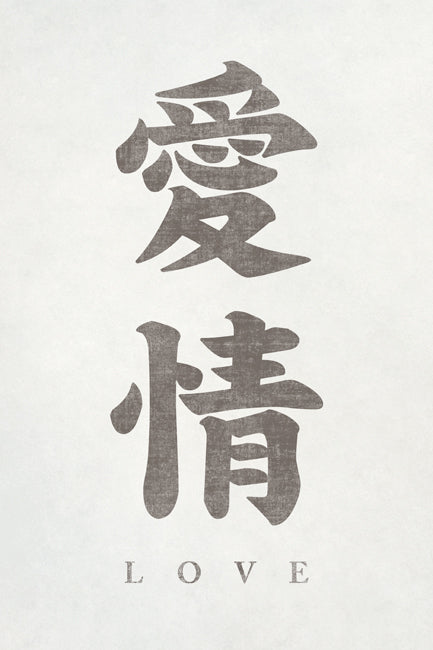 愛情
LOVE